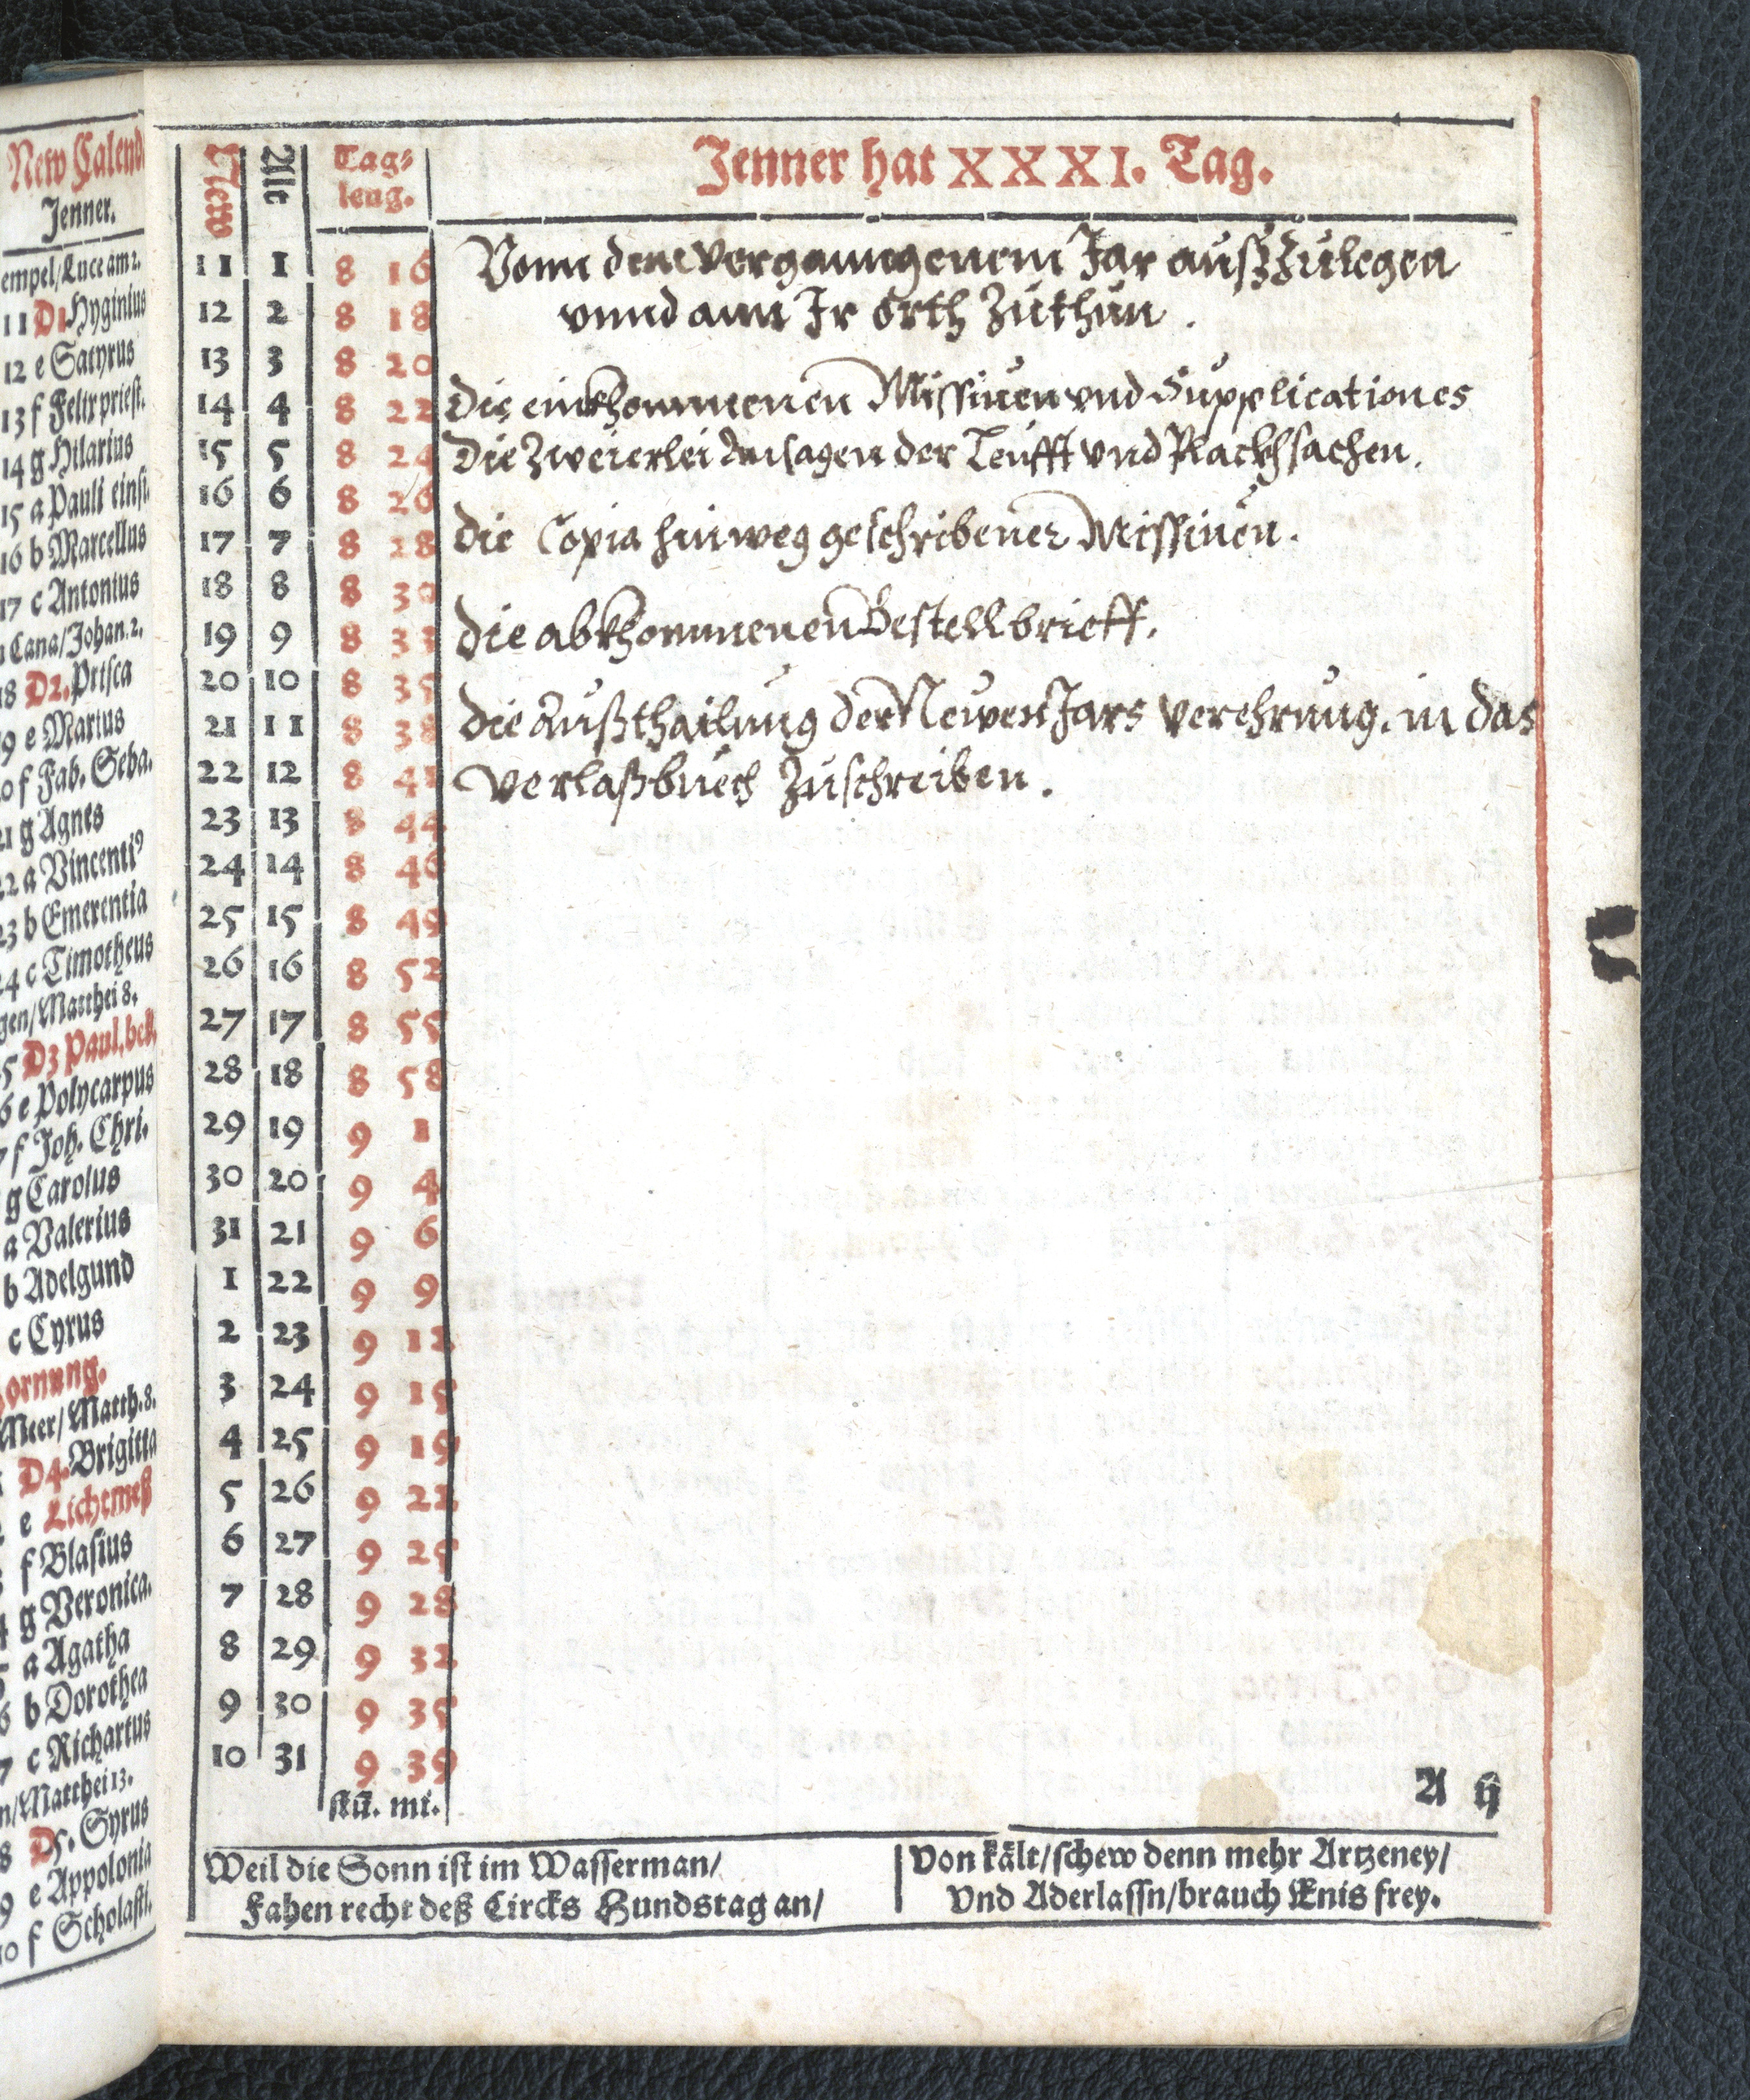 New Calend
Jenner.
empel/Luce am 2.
11 D1. Hyginius
12 e Satyrus
13 f Felix priest.
14 g Hilarius
15 a Pauli einsi.
16 b Marcellus
17 c Antonius
Cana/Johan. 2.
18 D2. Prisca
9 e Marius
o f Fab. Seba.
21 g Agnes
22 a Vincenti⁹
23 b Emerentia
24 c Timotheus
gen/Matthei 8.
5 D3 Paul. bek.
6 e Polycarpus
7 f Joh. Chri.
g Carolus
a Valerius
b Adelgund
c Cyrus
ornung.
Meer/Matth. 8.
D4. Brigitta
e Liechtmeß
f Blasius
g Veronica.
5 a Agatha
6 b Dorothea
7 c Richartus
n/Matthei 13.
8 D5. Syrus
9 e Appolonia
10 f Scholasti.
Jenner hat XXXI. Tag.
New Alt Tag⸗
leng.
11 1 8 16
12 2 8 18
13 3 8 20
14 4 8 22
15 5 8 24
16 6 8 26
17 7 8 28
18 8 8 30
19 9 8 33
20 10 8 35
21 11 8 38
22 12 8 41
23 13 8 44
24 14 8 46
25 15 8 49
26 16 8 52
27 17 8 55
28 18 8 58
29 19 9 1
30 20 9 4
31 21 9 6
1 22 9 9
2 23 9 12
3 24 9 15
4 25 9 19
5 26 9 22
6 27 9 25
7 28 9 28
8 29 9 32
9 30 9 35
10 31 9 39
stū. mi.
Vonn dem verganngenem Jar außzulegen
vnnd ann Jr orth zuthun.
die einkhommenen Missiuen vnd Supplicationes
die zweierlei Ansagen der Teufft vnd Rackhsachen.
die Copia hinweg geschribener Missiuen.
die abkhommenen Bestellbrieff.
die Außthailung der Newen Jars verehrung. in das
verlaßbuech zuschreiben.
A ij
Weil die Sonn ist im Wasserman/
Fahen recht deß Circks Hundstag an/
Von kält/schew denn mehr Artzeney/
Vnd Aderlassn/brauch Enis frey.